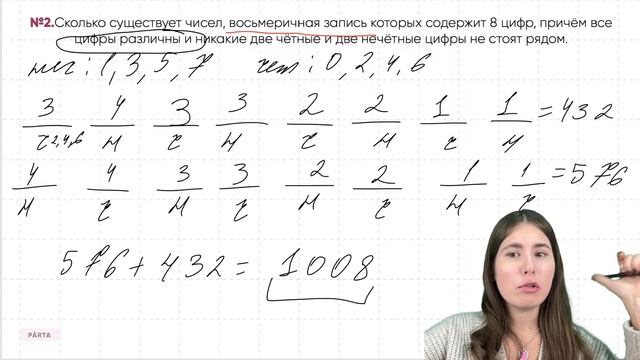 №2.Сколько существует чисел, восьмеричная запись которых содержит 8 цифр, причём все
цифры различны и никакие две чётные и две нечётные цифры не стоят рядом.
неч : 1, 3, 5, 7 чет : 0, 2, 4, 6
3 4 3 3 2 2 1 1 = 432
ч 2,4,6 н ч н ч н ч н
4 4 3 3 2 2 1 1 = 576
н ч н ч н ч н ч
576 + 432 = 1008
PÀRTA